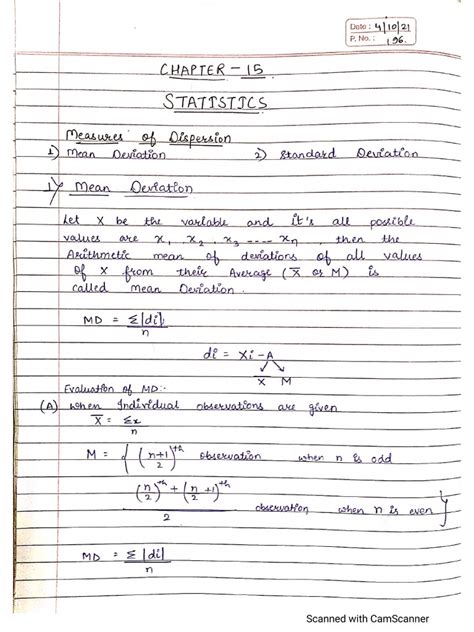 Date : 4/10/21
P. No. : 196.
CHAPTER - 15
STATISTICS
Measures of Dispersion
1) Mean Deviation 2) Standard Deviation
1) Mean Deviation
Let X be the variable and it's all possible
values are x₁, x₂, x₃ ---- xₙ, then the
Arithmetic mean of deviations of all values
of X from their Average (X̅ or M) is
called Mean Deviation.
MD = Σ|di|/n
di = Xi - A
X̅ M
Evaluation of MD:-
(A) When Individual observations are given
X̅ = Σx/n
M = { ((n+1)/2)ᵗʰ observation when n is odd
((n/2)ᵗʰ + (n/2 + 1)ᵗʰ)/2 observation when n is even }
MD = Σ|di|/n
Scanned with CamScanner